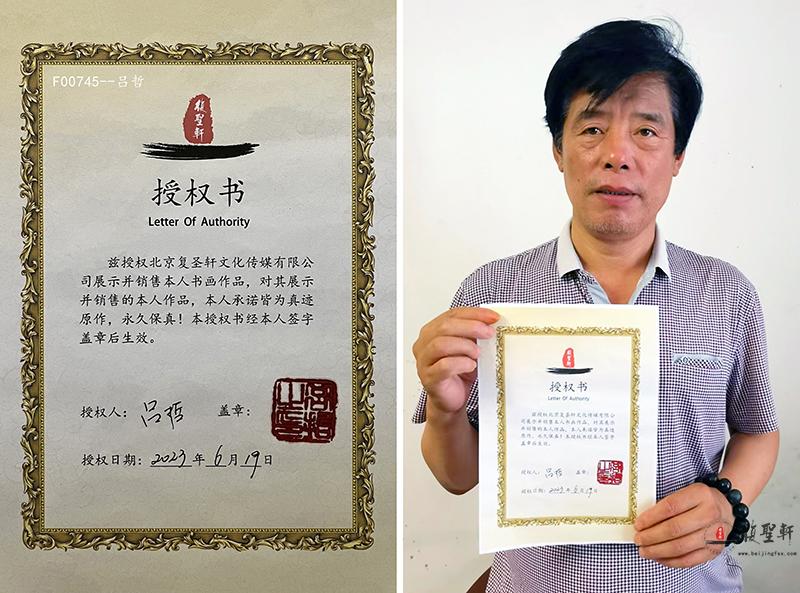 F00745--吕哲
復聖軒
授权书
Letter Of Authority
兹授权北京复圣轩文化传媒有限公
司展示并销售本人书画作品，对其展示
并销售的本人作品，本人承诺皆为真迹
原作，永久保真！本授权书经本人签字
盖章后生效。
授权人：吕哲 盖章：
授权日期：2023年6月19日
復聖軒
授权书
Letter Of Authority
兹授权北京复圣轩文化传媒有限公
司展示并销售本人书画作品，对其展示
并销售的本人作品，本人承诺皆为真迹
原作，永久保真！本授权书经本人签字
盖章后生效。
授权人：吕哲 盖章：
授权日期：2023年6月19日
復聖軒
www.beijingfsx.com